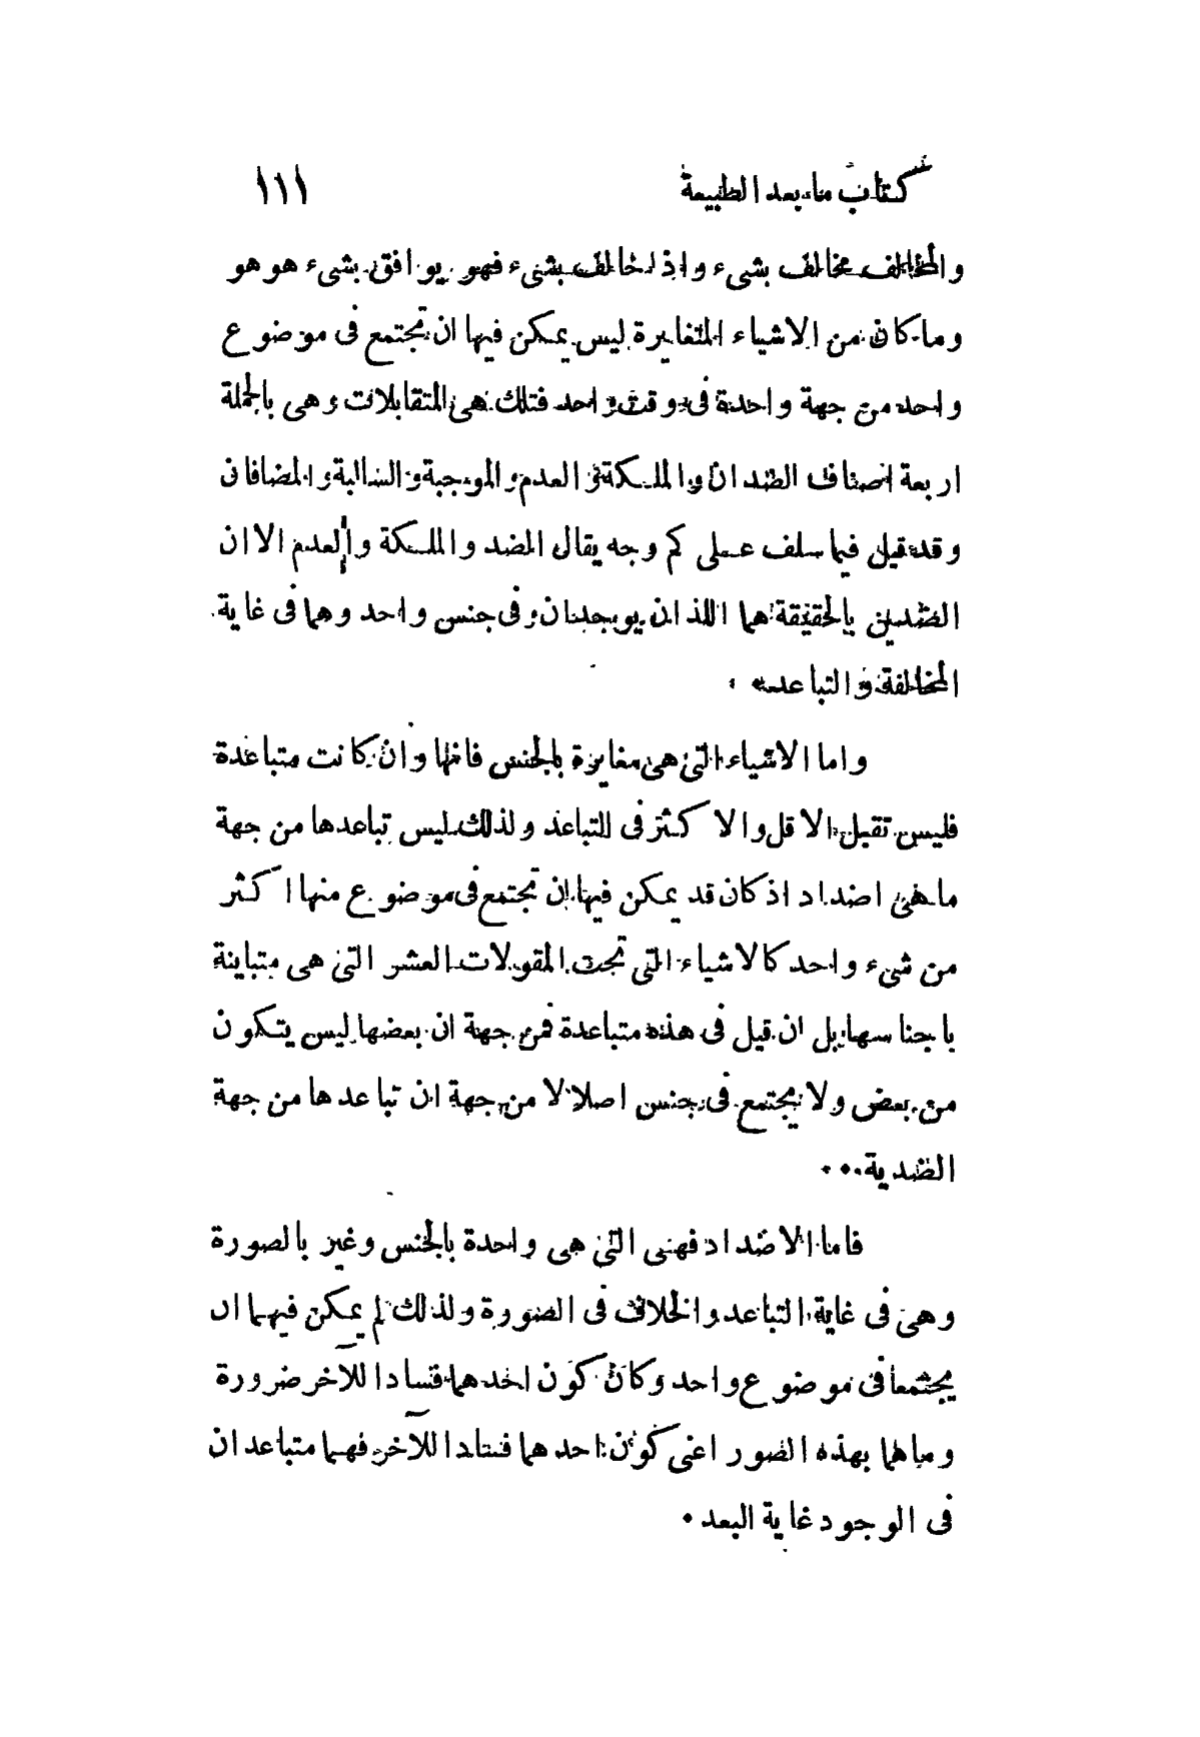 كتاب ما بعد الطبيعة ١١١
والمخالف مخالف بشىء واذا خالف بشىء فهو يوافق بشىء هو هو
وما كان من الاشياء المتغايرة ليس يمكن فيها ان تجتمع فى موضوع
واحد من جهة واحدة فى وقت واحد فتلك هى المتقابلات وهى بالجملة
اربعة اصناف الضدان والملكة والعدم والموجبة والسالبة والمضافان
وقد قيل فيما سلف على كم وجه يقال المضد والملكة والعدم الا ان
الضدين بالحقيقة هما اللذان يوجدان فى جنس واحد وهما فى غاية
المخالفة والتباعد .
واما الاشياء التى هى مغايرة بالجنس فانها وان كانت متباعدة
فليس تقبل الاقل والا كثر فى التباعد ولذلك ليس تباعدها من جهة
ما هى اضداد اذ كان قد يمكن فيها ان تجتمع فى موضوع منها اكثر
من شىء واحد كالاشياء التى تحت المقولات العشر التى هى متباينة
باجناسها بل ان قيل فى هذه متباعدة فمن جهة ان بعضها ليس يتكون
من بعض ولا يجتمع فى جنس اصلا لا من جهة ان تباعدها من جهة
الضدية ..
فاما الاضداد فهى التى هى واحدة بالجنس وغير بالصورة
وهى فى غاية التباعد والخلاف فى الصورة ولذلك لم يمكن فيهما ان
يجتمعا فى موضوع واحد وكان كون احدهما فسادا للآخر ضرورة
وما هما بهذه الصور اعنى كون احدهما فسادا للآخر فهما متباعدان
فى الوجود غاية البعد .